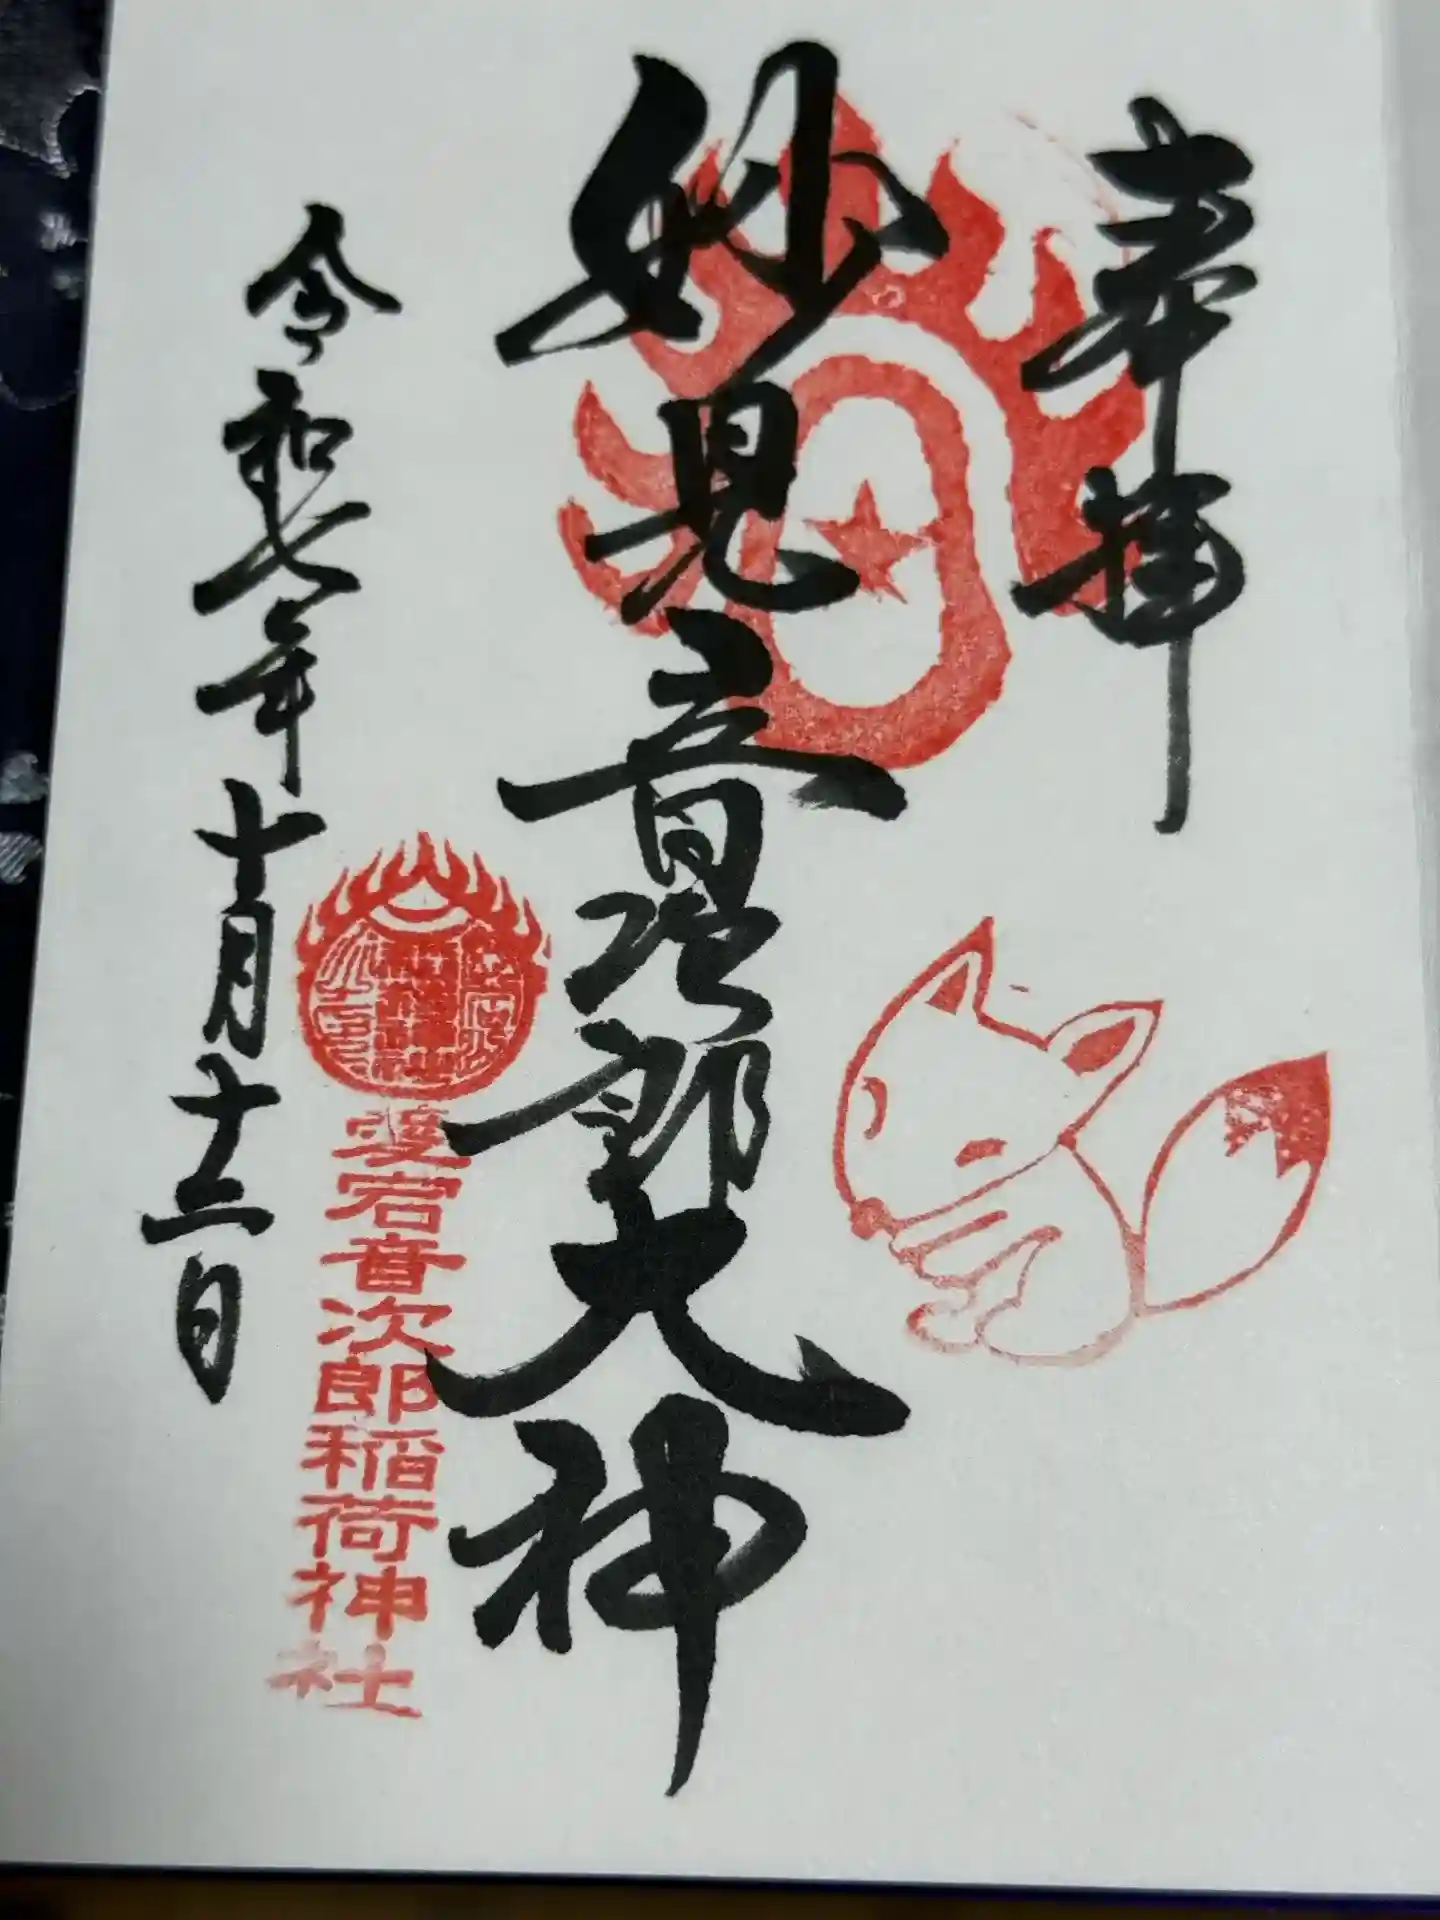 奉拝
妙見音次郎大神
愛宕音次郎稲荷神社
令和七年十月十二日